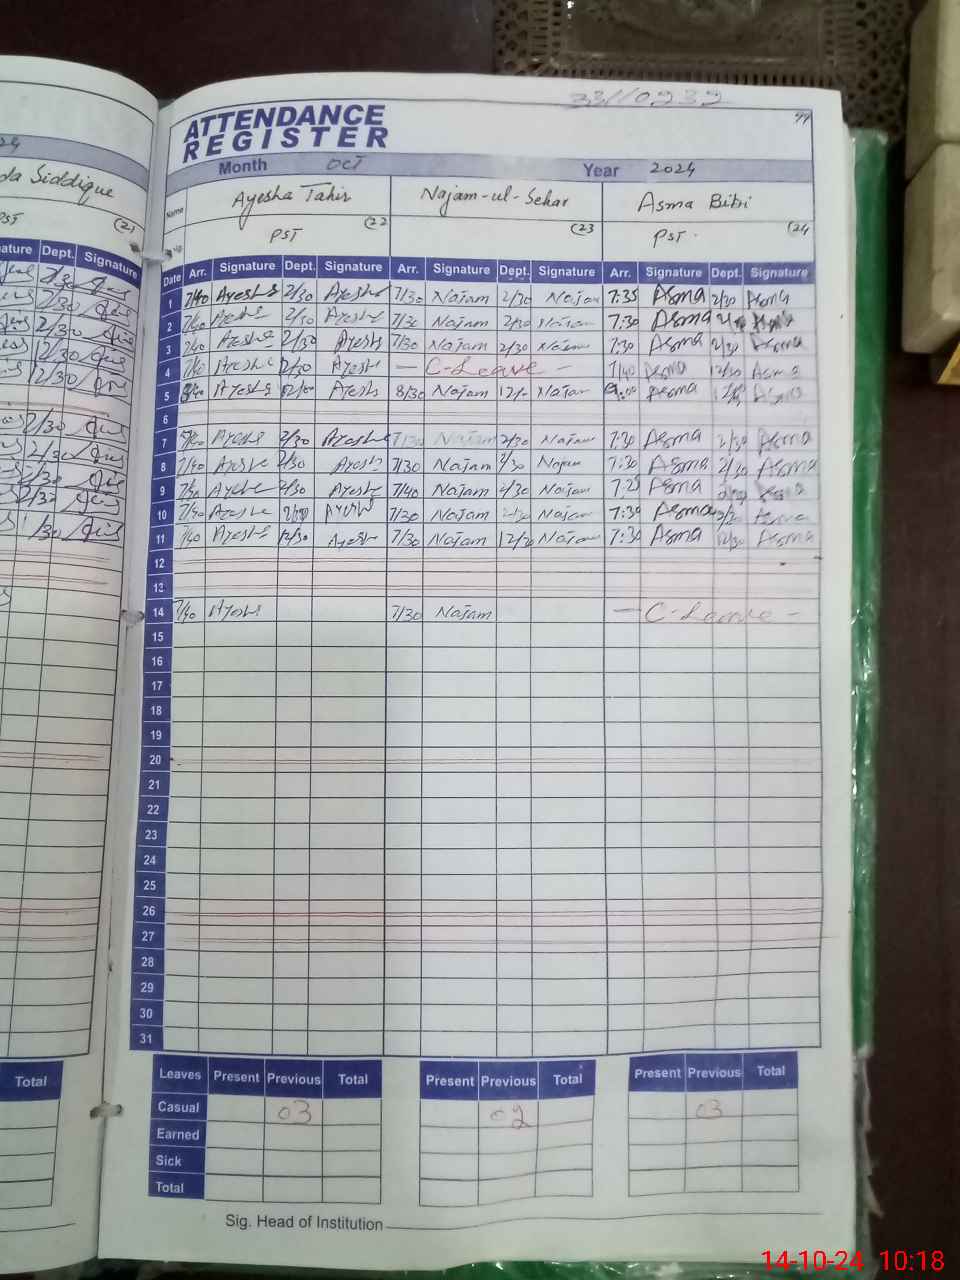 33110939
99
ATTENDANCE
REGISTER
Month OCT Year 2024
da Siddique
Name Ayesha Tahir Najam-ul-Sehar Asma Bibi
PST (21
PST (22 (23 PST. (24
ature Dept. Signature
Date Arr. Signature Dept. Signature Arr. Signature Dept. Signature Arr. Signature Dept. Signature
1 7/40 Ayesha 2/30 Ayesha 7/30 Najam 2/30 Najam 7:35 Asma 2/30 Asma
2 7/40 Ayesha 2/30 Ayesha 7/30 Najam 2/30 Najam 7:30 Asma
3 7/40 Ayesha 2/30 Ayesha 7/30 Najam 2/30 Najam 7:30 Asma 2/30 Asma
4 7/40 Ayesha 2/30 Ayesha — C-Leave - 7/40 Asma 12/30 Asma
5 Ayesha 12/00 Ayesha 8/30 Najam Najam Asma Asma
6
7 Ayesha 2/30 Ayesha 7/30 Najam 2/30 Najam 7:30 Asma 2/30 Asma
8 7/40 Ayesha 2/30 Ayesha 7/30 Najam 2/30 Najam 7:30 Asma 2/30 Asma
9 7/40 Ayesha 2/30 Ayesha 7/40 Najam 2/30 Najam Asma
10 7/40 Ayesha 2/30 Ayesha 7/30 Najam 2/30 Najam 7:30 Asma Asma
11 7/40 Ayesha 12/30 Ayesha 7/30 Najam 12/30 Najam 7:30 Asma 12/30 Asma
12
13
14 7/40 Ayesha 7/30 Najam — C-Leave -
15
16
17
18
19
20
21
22
23
24
25
26
27
28
29
30
31
Total
Leaves Present Previous Total Present Previous Total Present Previous Total
Casual 03 02 03
Earned
Sick
Total
Sig. Head of Institution
14-10-24 10:18